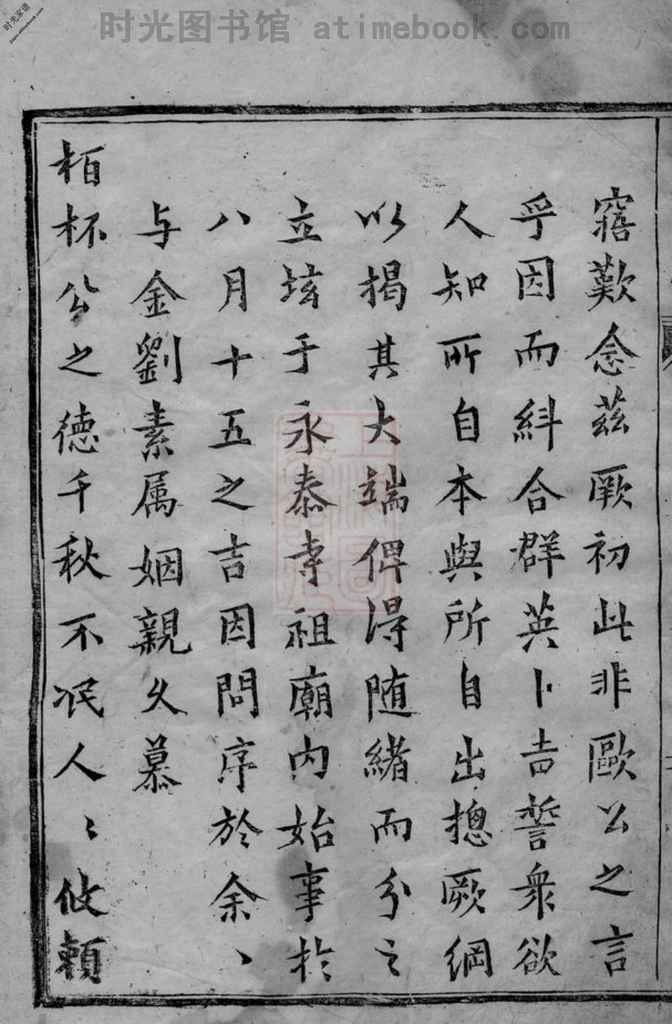 时光图书馆 atimebook.com
寤歎念茲厥初此非歐公之言
乎因而糾合群英卜吉誓衆欲
人知所自本與所自出摠厥綱
以揭其大端俾得随緒而分之
立垓于永泰寺祖廟内始事於
八月十五之吉因問序於余、
与金劉素属姻親久慕
栢杯公之德千秋不泯人、攸賴